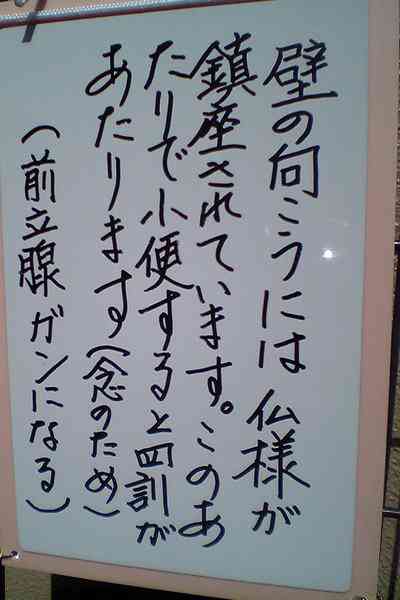 壁の向こうには仏様が
鎮座されています。このあ
たりで小便すると罰が
あたります(念のため)
(前立腺ガンになる)